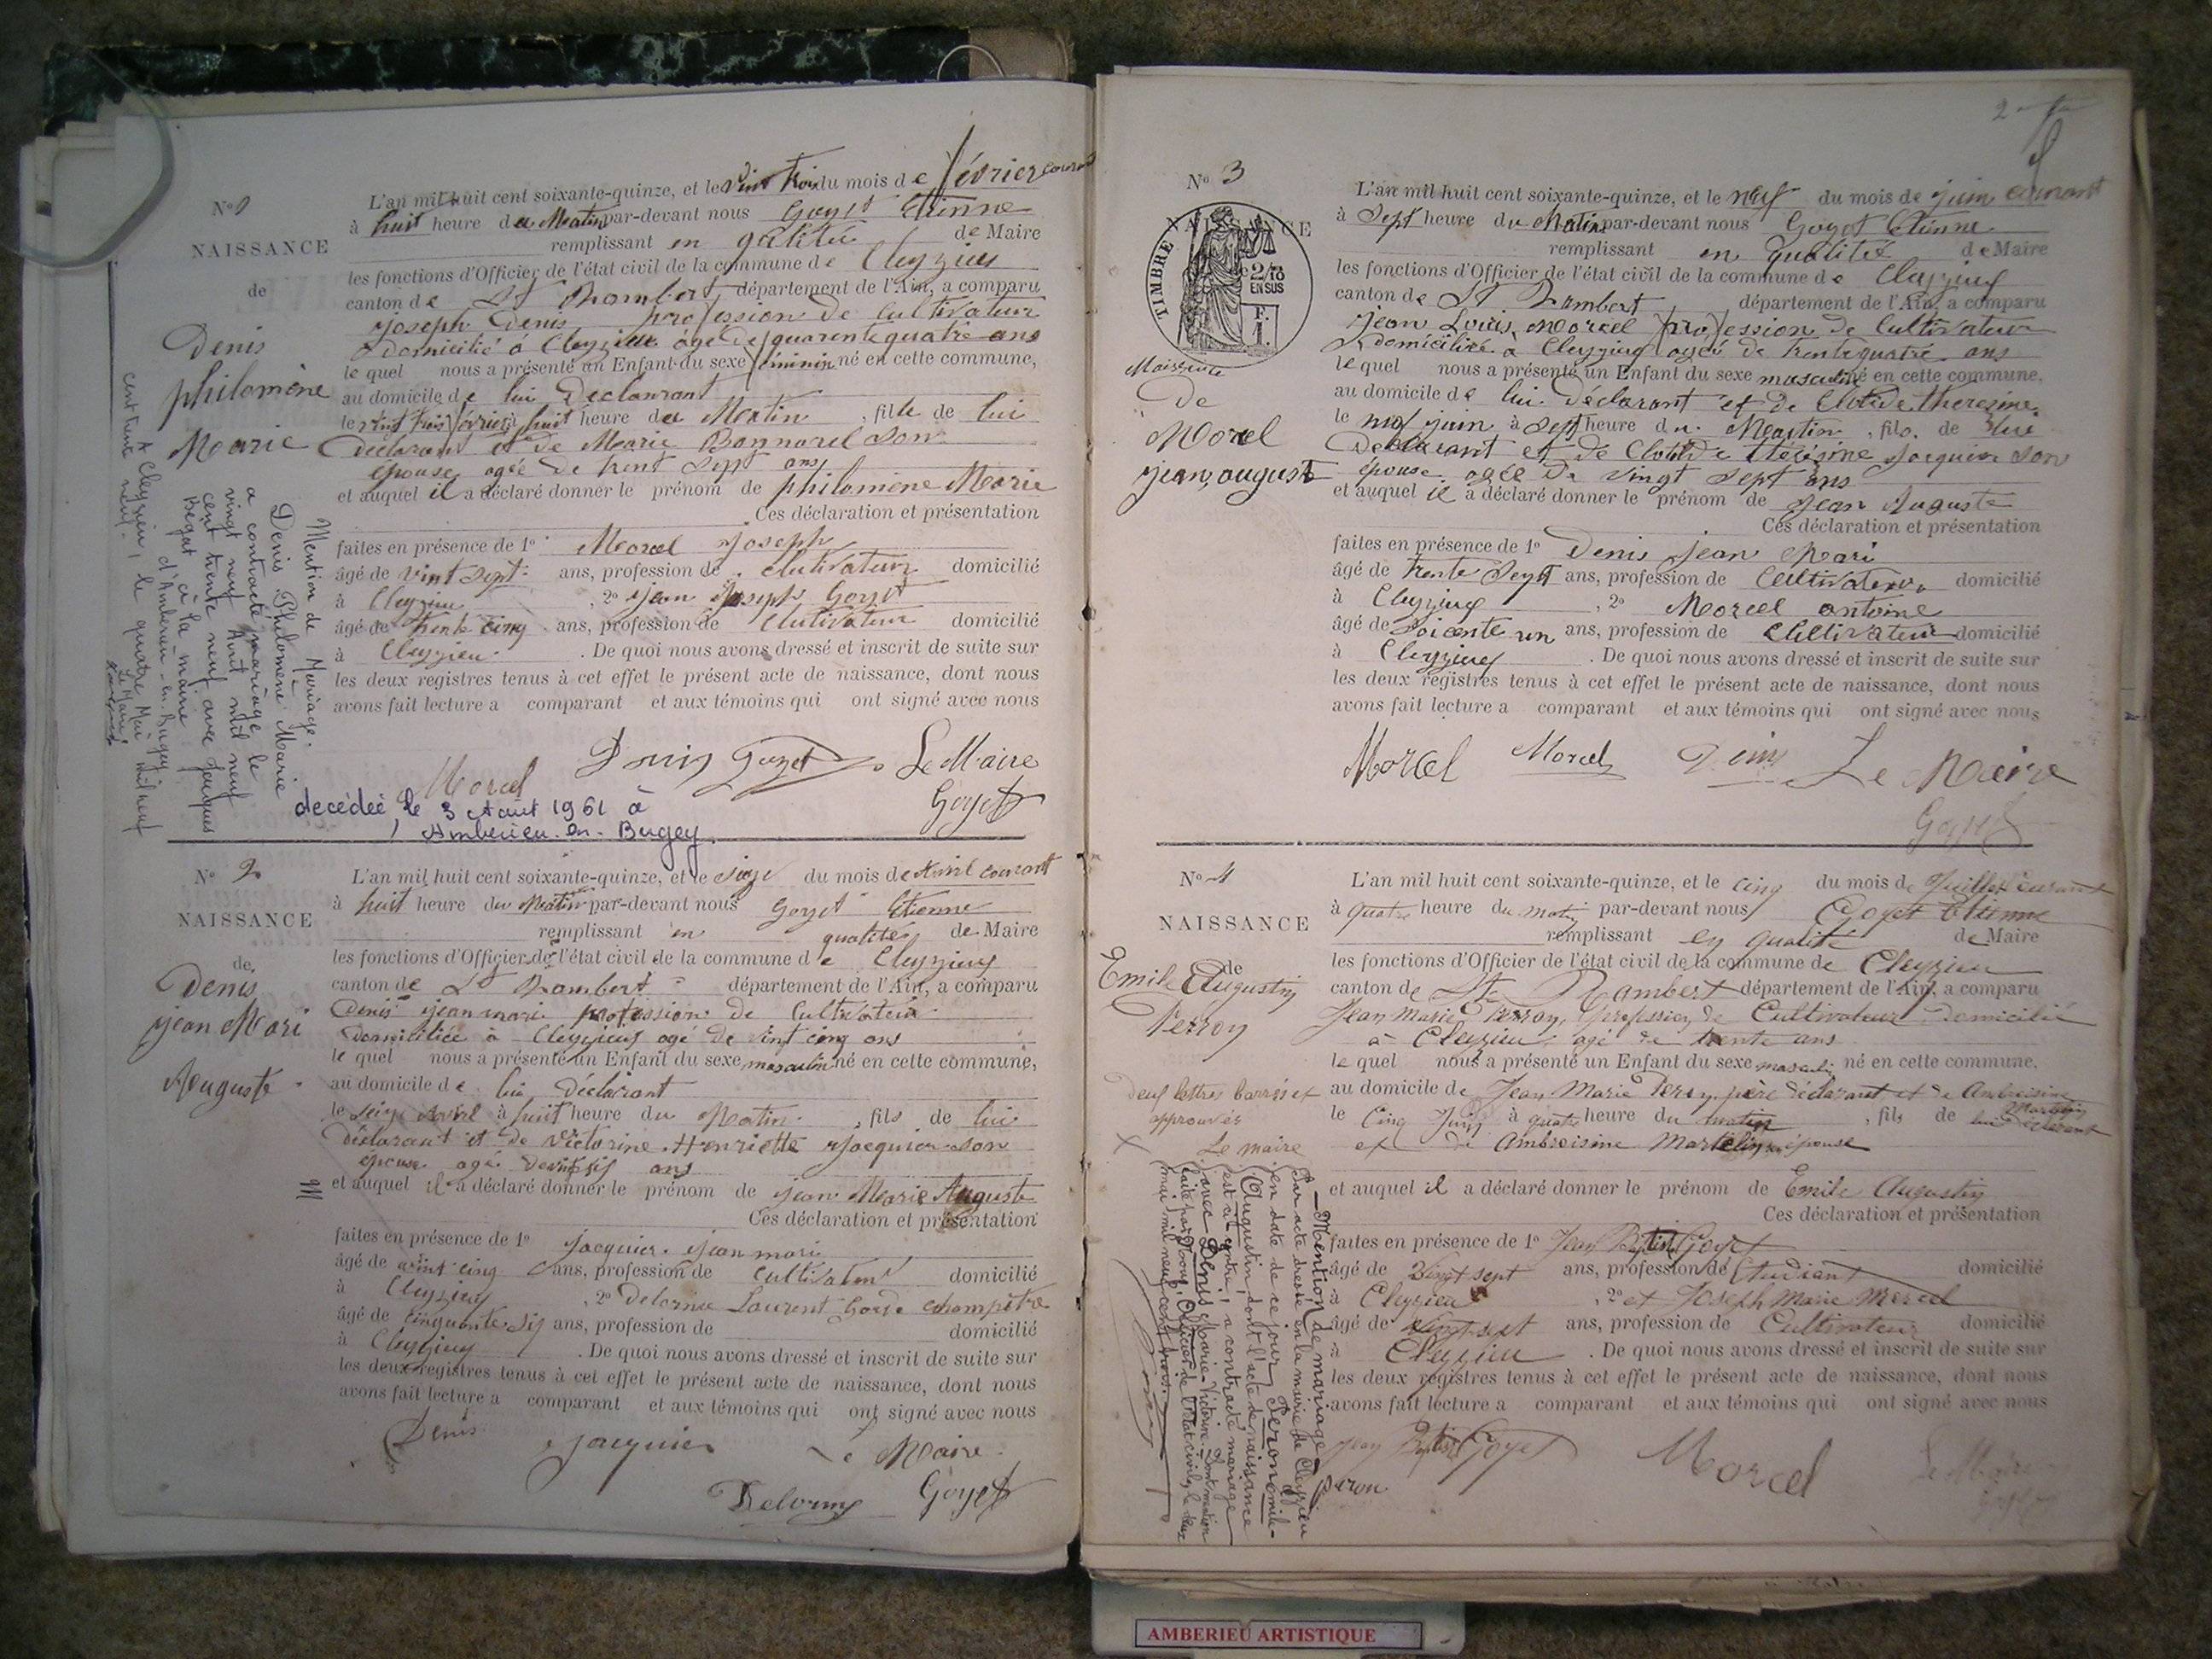 N° 1
NAISSANCE
de
Denis
philomène
Marie
L'an mil huit cent soixante-quinze, et le vint trois du mois de février courant
à huit heure du Matin par-devant nous Goyet Etienne
remplissant en qalité de Maire
les fonctions d'Officier de l'état civil de la commune de Cleyzieu
canton de St Rambert département de l'Ain, a comparu
joseph Denis profession de Cultivateur
domicilié à Cleyzieu âgé de quarente quatre ans
le quel nous a présenté un Enfant du sexe féminin né en cette commune,
au domicile de lui Déclarant
le vint trois février à huit heure du Matin , fille de lui
Déclarant et de Marie Bonnarel Son
épouse agée de trent Sept ans
et auquel il a déclaré donner le prénom de philomène Marie
Ces déclaration et présentation
faites en présence de 1° Morcel Joseph
âgé de vint Sept ans, profession de Cultivateur domicilié
à Cleyzieu , 2° jean joseph Goyet
âgé de trente cinq ans, profession de Cultivateur domicilié
à Cleyzieu . De quoi nous avons dressé et inscrit de suite sur
les deux registres tenus à cet effet le présent acte de naissance, dont nous
avons fait lecture a comparant et aux témoins qui ont signé avec nous
Morcel Denis Goyet Le Maire
Goyet
decédée le 3 Août 1961 à
Ambérieu-en-Bugey.
Mention de Mariage.
Denis Philomène Marie
a contracté mariage le
vingt neuf Avril mil neuf
cent trente neuf avec Jacques
Bégat à la mairie
d'Ambérieu-en-Bugey
A Cleyzieu, le quatre Mai mil neuf
cent trente neuf.
Le Maire,
N° 2
NAISSANCE
de
Denis
jean Mari
Auguste
L'an mil huit cent soixante-quinze, et le seize du mois de Avril courant
à huit heure du Matin par-devant nous Goyet Etienne
remplissant en qualité de Maire
les fonctions d'Officier de l'état civil de la commune de Cleyzieu
canton de St Rambert département de l'Ain, a comparu
Denis jean mari profession de Cultivateur
domicilié à Cleyzieu agé de vint cinq ans
le quel nous a présenté un Enfant du sexe masculin né en cette commune,
au domicile de lui déclarant
le seize Avril à huit heure du Matin , fils de lui
Déclarant et de Victorine Henriette Jacquier son
épouse agé de vint six ans
et auquel il a déclaré donner le prénom de jean Marie Auguste
Ces déclaration et présentation
faites en présence de 1° Jacquier jean mari
âgé de vint cinq ans, profession de cultivateur domicilié
à Cleyzieu , 2° Delorme Laurent Garde champêtre
âgé de cinquante six ans, profession de domicilié
à Cleyzieu . De quoi nous avons dressé et inscrit de suite sur
les deux registres tenus à cet effet le présent acte de naissance, dont nous
avons fait lecture a comparant et aux témoins qui ont signé avec nous
Denis Jacquier Le Maire
Delorme Goyet
2
N° 3
NAISSANCE
TIMBRE
2/10
EN SUS
F.
1.
Naissance
de
Morcel
jean august
L'an mil huit cent soixante-quinze, et le neuf du mois de juin courant
à Sept heure du Matin par-devant nous Goyet Etienne
remplissant en qualité de Maire
les fonctions d'Officier de l'état civil de la commune de Cleyzieu
canton de St Rambert département de l'Ain, a comparu
jean Louis Morcel profession de Cultivateur
Domicilié à Cleyzieu agé de trente quatre ans
le quel nous a présenté un Enfant du sexe masculin né en cette commune.
au domicile de lui Déclarant et de Clotide theresine
le neuf juin à Sept heure du Mastin , fils de lui
Déclarant et de Clotide térésine Jacquier Son
épouse agée de vingt Sept ans
et auquel il a déclaré donner le prénom de Jean Auguste
Ces déclaration et présentation
faites en présence de 1° Denis jean Mari
âgé de trente Sept ans, profession de Cultivateur domicilié
à Cleyzieu , 2° Morcel antoine
âgé de Soicente un ans, profession de Cultivateur domicilié
à Cleyzieu . De quoi nous avons dressé et inscrit de suite sur
les deux registres tenus à cet effet le présent acte de naissance, dont nous
avons fait lecture a comparant et aux témoins qui ont signé avec nous
Morcel Morcel Denis Le Maire
Goyet
N° 4
NAISSANCE
de
Emile Augustin
Perron
Deux lettres barrées et
approuvés
Le maire
L'an mil huit cent soixante-quinze, et le cinq du mois de Juillet courant
à quatre heure du matin par-devant nous Goyet Etienne
remplissant en qualité de Maire
les fonctions d'Officier de l'état civil de la commune de Cleyzieu
canton de St Rambert département de l'Ain, a comparu
Jean Marie Perron, profession de Cultivateur domicilié
à Cleyzieu, agé de trente ans
le quel nous a présenté un Enfant du sexe masculin né en cette commune.
au domicile de Jean Marie Peron, père déclarant et de Ambroisine
Martelin
le Cinq Juin à quatre heure du matin , fils de lui déclarant
et de Ambroisine Martelin épouse
et auquel il a déclaré donner le prénom de Emile Augustin
Ces déclaration et présentation
faites en présence de 1° Jean Baptiste Goyet
âgé de Vingt sept ans, profession de Etudiant domicilié
à Cleyzieu , 2° et Joseph Marie Morcel
âgé de vingt-sept ans, profession de Cultivateur domicilié
à Cleyzieu . De quoi nous avons dressé et inscrit de suite sur
les deux registres tenus à cet effet le présent acte de naissance, dont nous
avons fait lecture a comparant et aux témoins qui ont signé avec nous
Jean Baptiste Goyet Morcel Le Maire
Peron
Mention de mariage
Par acte dressé en la mairie de Cleyzieu
en date de ce jour, Peron Emile-
Augustin, dont l'acte de naissance
est ci-contre, a contracté mariage
avec Denis Marie-Victorine. Dont mention
faite par nous, Officier de l'état civil, le
mai mil neuf cent trois.
AMBERIEU ARTISTIQUE